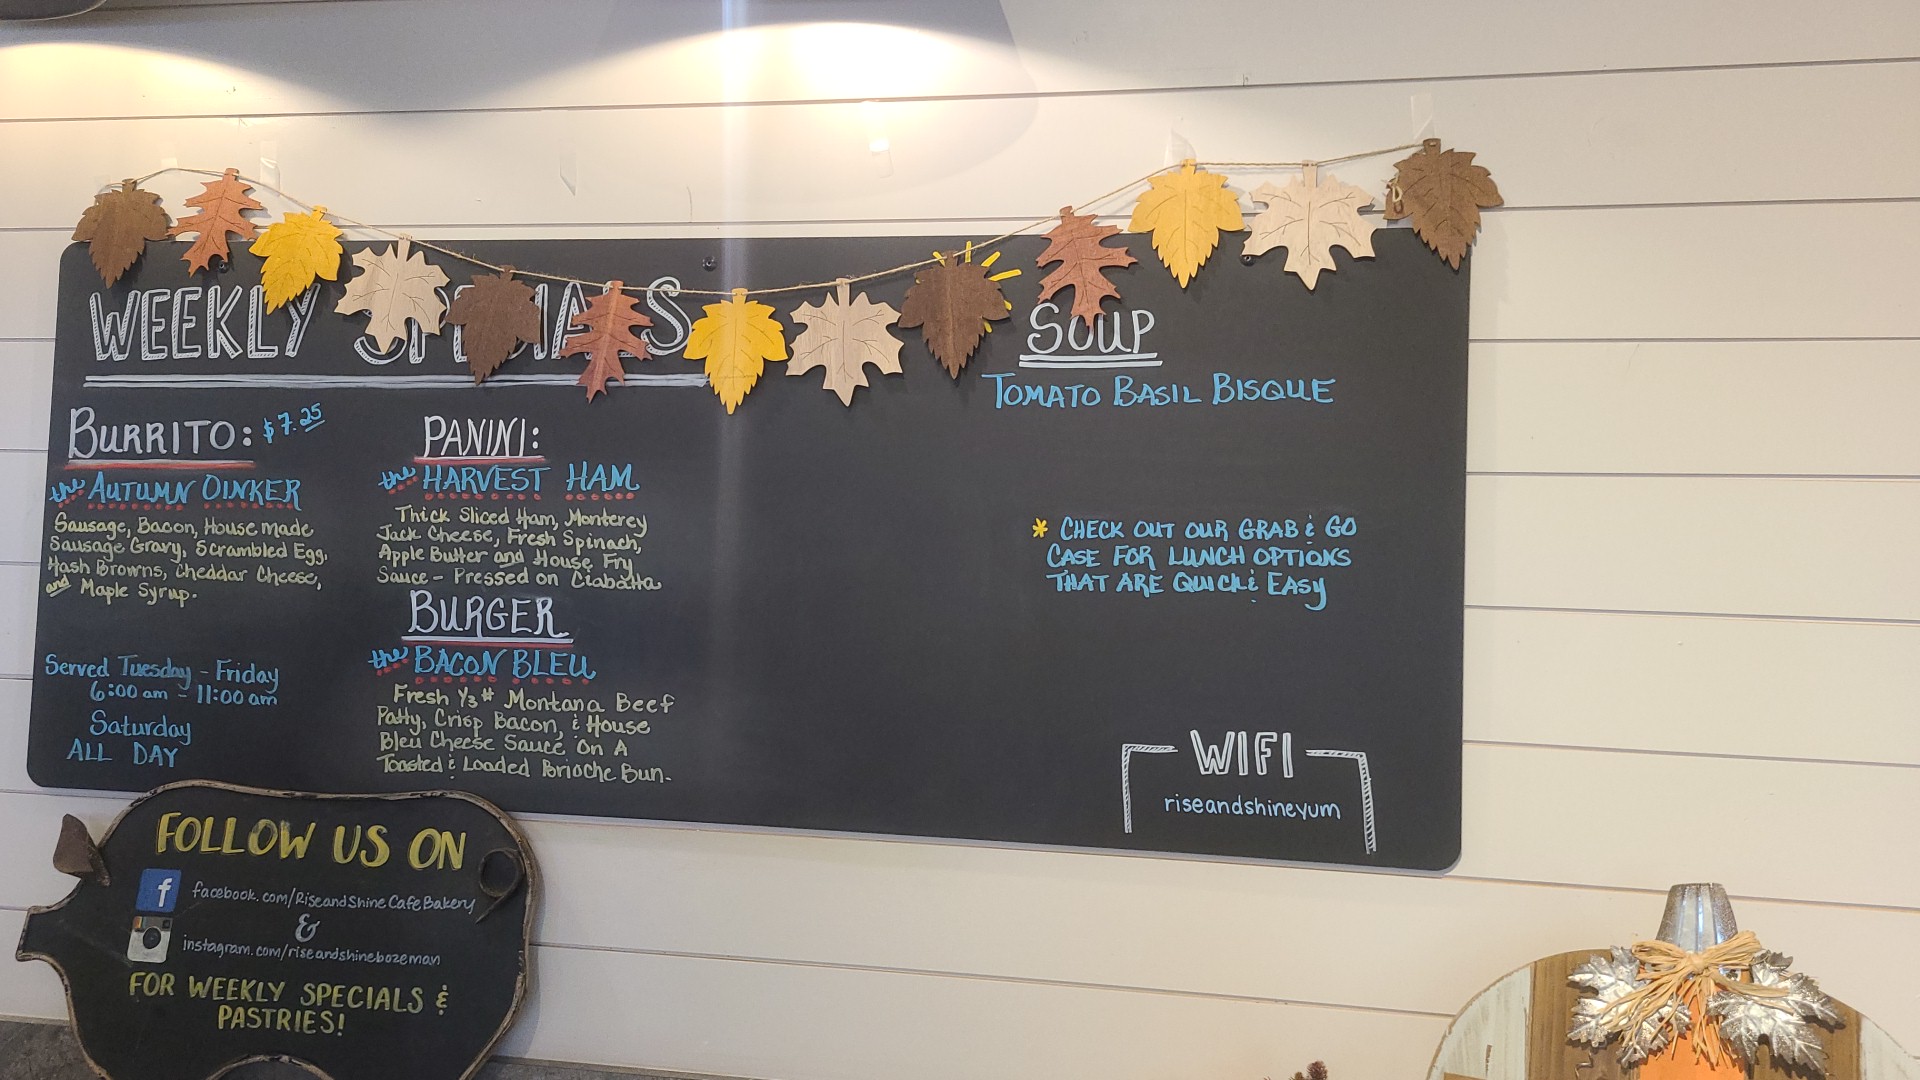 WEEKLY SPECIALS
BURRITO: $7.25
the AUTUMN OINKER
Sausage, Bacon, House made
Sausage Gravy, Scrambled Egg,
Hash Browns, Cheddar Cheese,
and Maple Syrup.
Served Tuesday - Friday
6:00 am - 11:00 am
Saturday
ALL DAY
PANINI:
the HARVEST HAM
Thick Sliced Ham, Monterey
Jack Cheese, Fresh Spinach,
Apple Butter and House Fry
Sauce - Pressed on Ciabatta
BURGER
the BACON BLEU
Fresh 1/3 # Montana Beef
Patty, Crisp Bacon, & House
Bleu Cheese Sauce On A
Toasted & Loaded Brioche Bun.
SOUP
TOMATO BASIL BISQUE
* CHECK OUT OUR GRAB & GO
CASE FOR LUNCH OPTIONS
THAT ARE QUICK & EASY
WIFI
riseandshineyum
FOLLOW US ON
f facebook.com/RiseandShineCafeBakery
&
instagram.com/riseandshinebozeman
FOR WEEKLY SPECIALS &
PASTRIES!